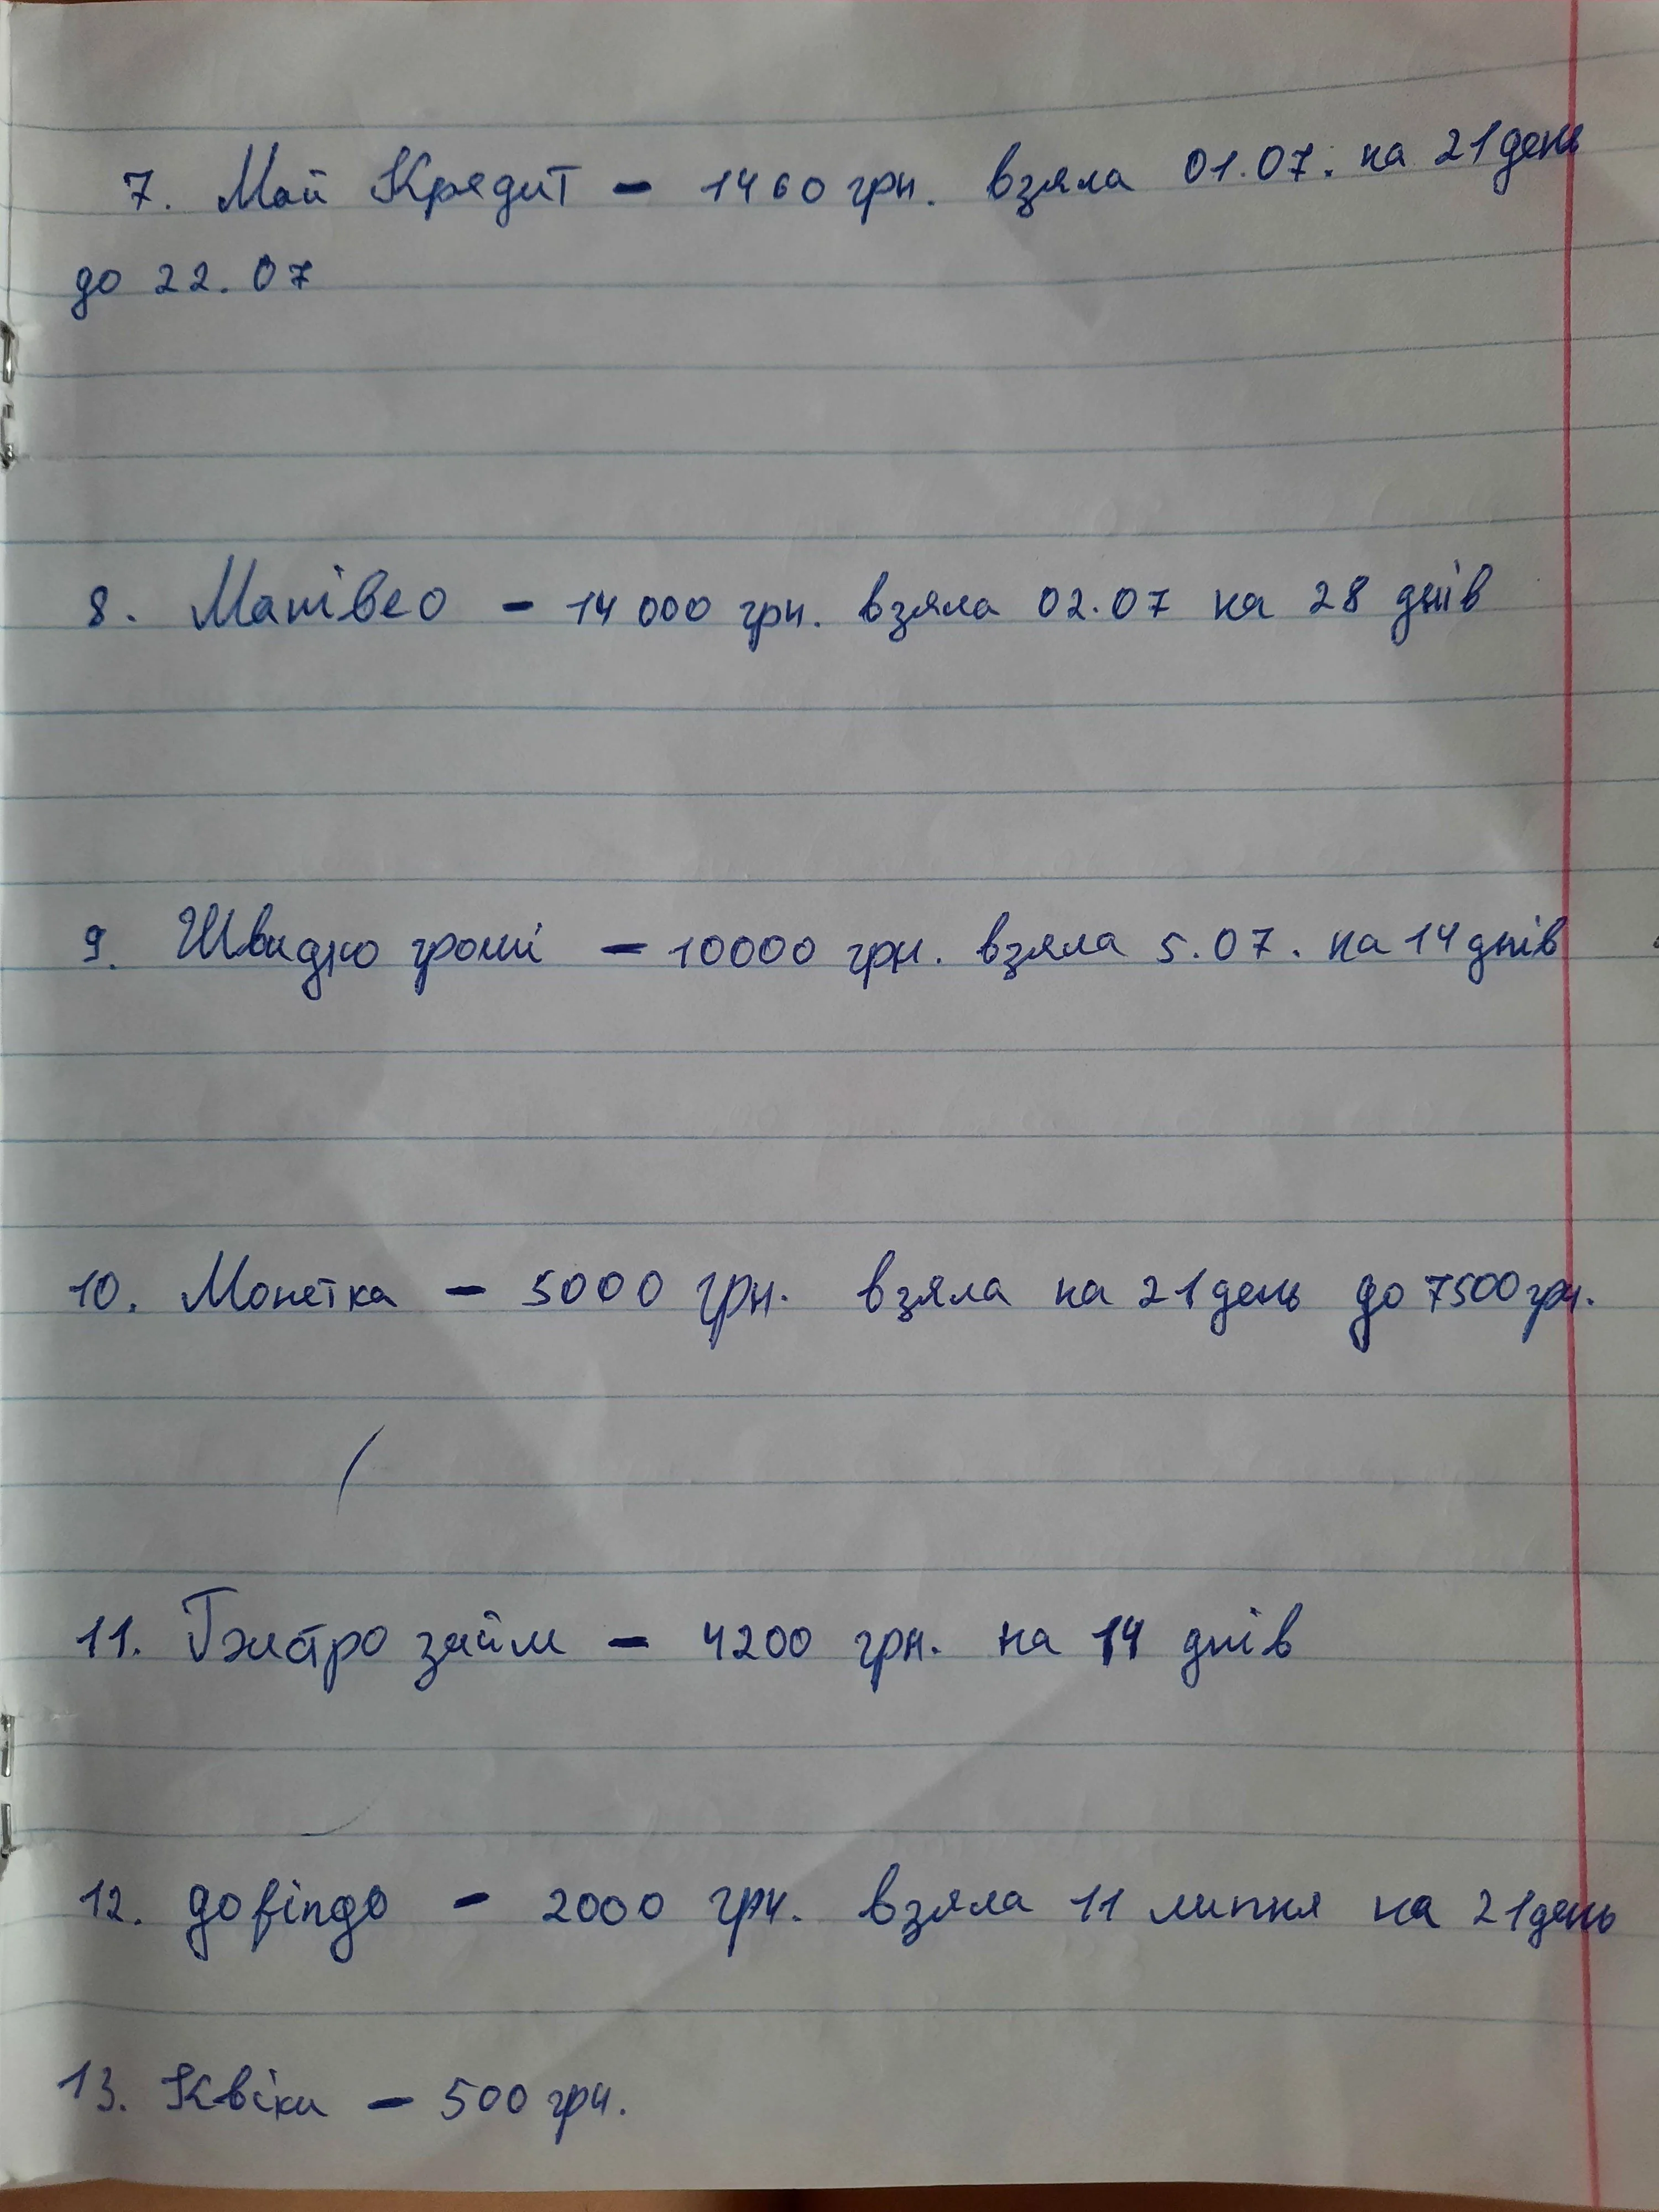 7. Мой Кредит - 1460 грн. взяла 01.07. на 21 день
до 22.07
8. Манівео - 14 000 грн. взяла 02.07 на 28 днів
9. Швидко гроші - 10000 грн. взяла 5.07. на 14 днів
10. Монетка - 5000 грн. взяла на 21 день до 7500 грн.
11. займ - 4200 грн. на 14 днів
12. gofingo - 2000 грн. взяла 11 липня на 21 день
13. Квіки - 500 грн.